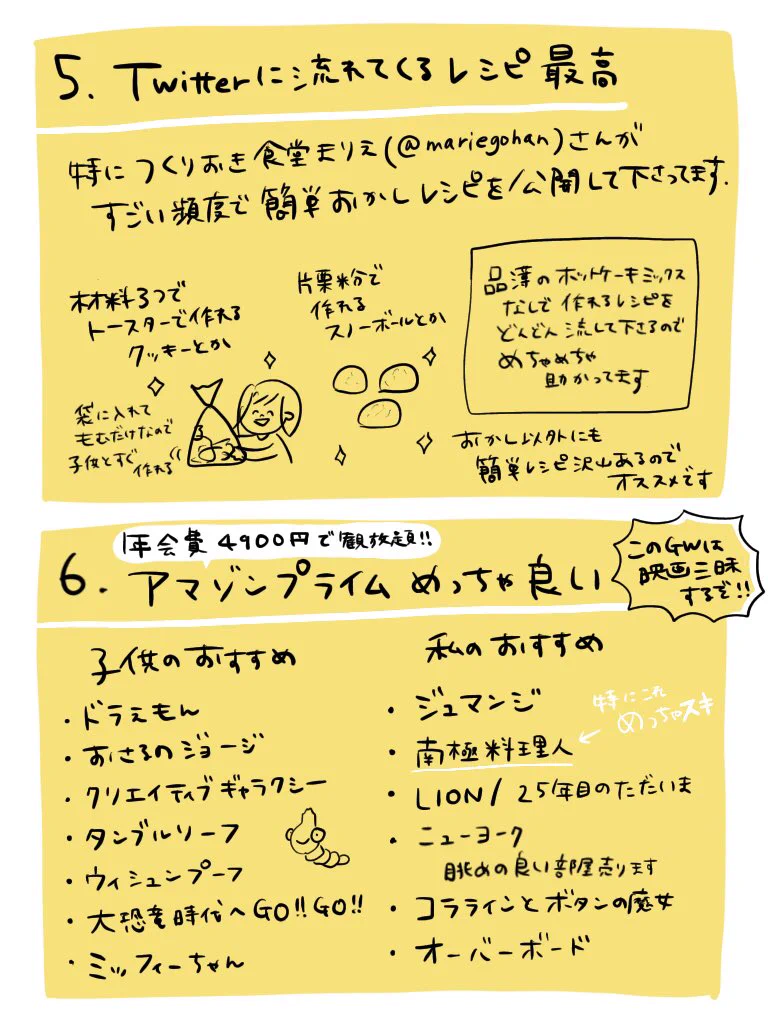 5. Twitterに流れてくるレシピ 最高
特に つくりおき食堂まりえ(@mariegohan)さんが
すごい頻度で 簡単おかしレシピを公開して下さってます.
材料3つで
トースターで作れる
クッキーとか
片栗粉で
作れる
スノーボールとか
品薄の ホットケーキミックス
なしで 作れるレシピを
どんどん 流して下さるので
めちゃめちゃ
助かってます
袋に入れて
もむだけなので
子供とすぐ
作れる
おかし以外にも
簡単レシピ沢山あるので
オススメです
1年会費 4900円で観放題!!
6. アマゾンプライム めっちゃ良い
このGWは
映画三昧
するぞ!!
子供のおすすめ
・ドラえもん
・おさるのジョージ
・クリエイティブギャラクシー
・タンブルリーフ
・ウィシュンプーフ
・大恐竜時代へGO!!GO!!
・ミッフィーちゃん
私のおすすめ
・ジュマンジ
・南極料理人
特にこれ
めっちゃスキ
・LION/25年目のただいま
・ニューヨーク
眺めの良い部屋売ります
・コララインとボタンの魔女
・オーバーボード